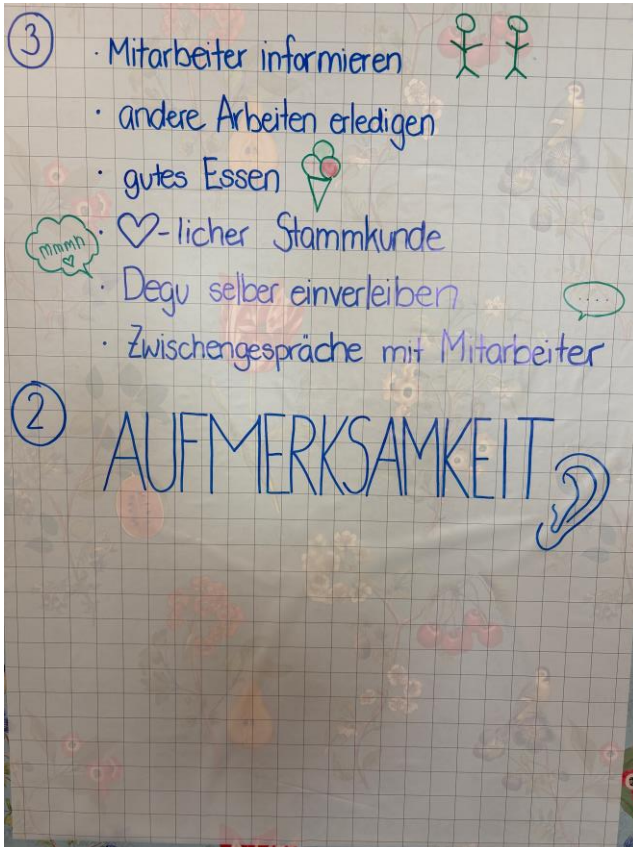 ③ · Mitarbeiter informieren
· andere Arbeiten erledigen
· gutes Essen
· ♡-licher Stammkunde
mmmh ♡
· Degu selber einverleiben
....
· Zwischengespräche mit Mitarbeiter
② AUFMERKSAMKEIT